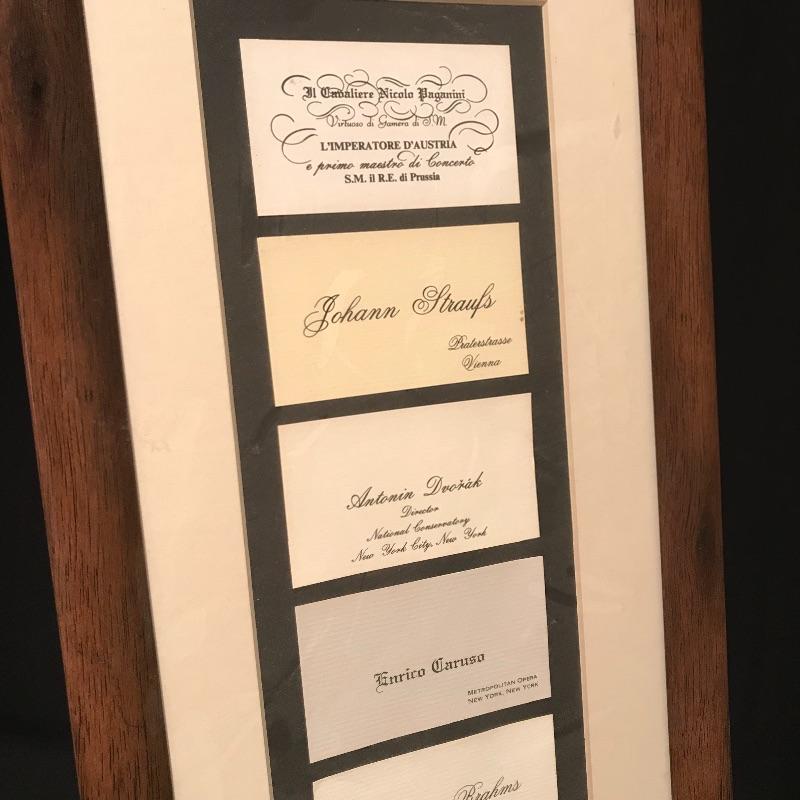 Il Cavaliere Nicolo Paganini
Virtuoso di Gamera di S.M.
L'IMPERATORE D'AUSTRIA
e primo maestro di Concerto
S.M. il R.E. di Prussia
Johann Straufs
Praterstrasse
Vienna
Antonin Dvořák
Director
National Conservatory
New York City, New York
Enrico Caruso
METROPOLITAN OPERA
NEW YORK, NEW YORK
Brahms